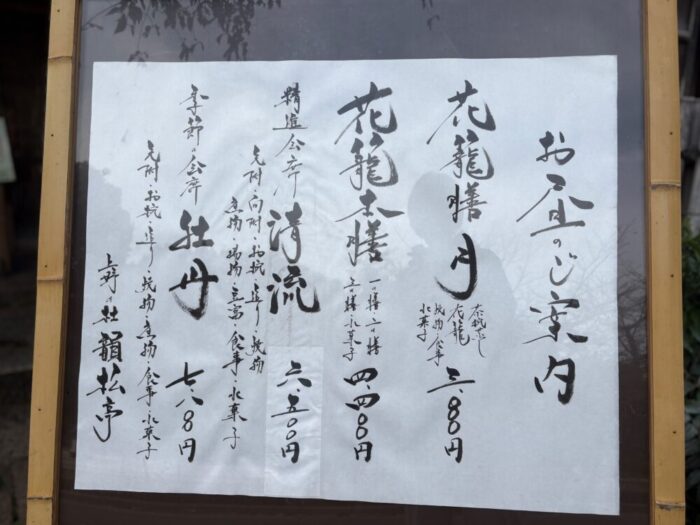 お昼のご案内
花籠膳 月
茶碗むし
花籠
焼物・食事
水菓子
三・八〇〇円
花籠本膳
一の膳・二の膳
三の膳・水菓子
四・四〇〇円
精進会席 清流 六・五〇〇円
先附・向附・お椀・造り・焼物
煮物・揚物・豆富・食事・水菓子
季節の会席 牡丹 七・八〇〇円
先附・お椀・造り・焼物・煮物・食事・水菓子
上野の杜 韻松亭